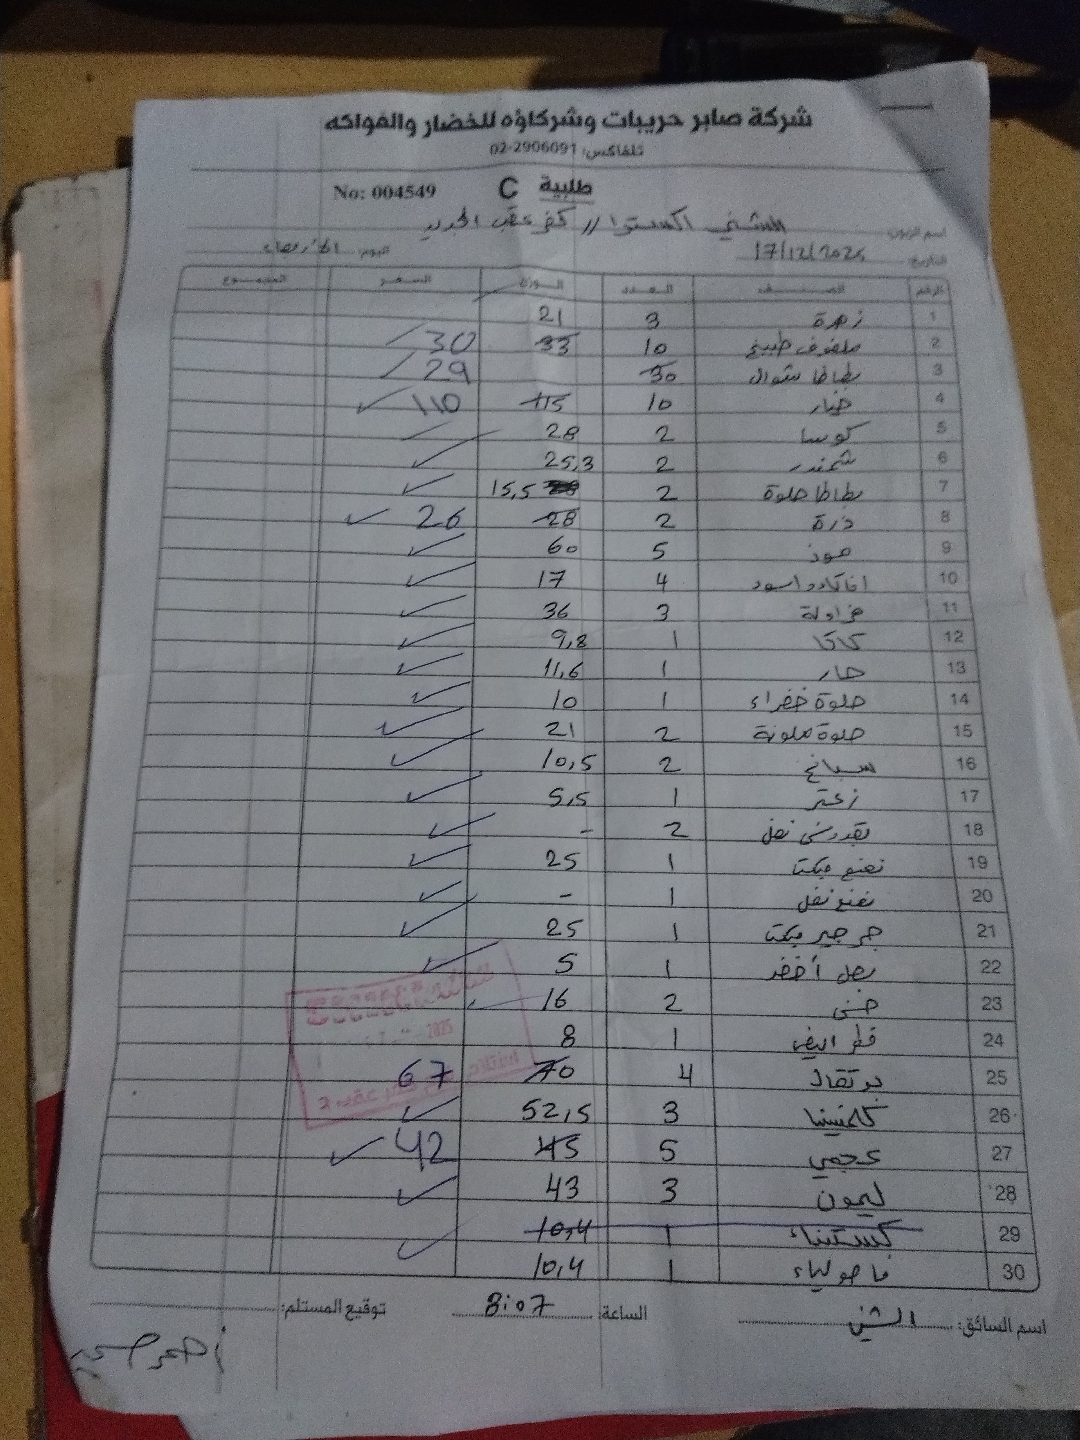 شركة صابر حريبات وشركاؤه للخضار والفواكه
تلفاكس: 02-2906091
No: 004549 طلبية C
اسم الزبون: الشني اكسترا // كفر عقب الجديد
التاريخ: 17/12/2025 اليوم: الأربعاء
الرقم الصنف العدد الوزن السعر المجموع
1 زهرة 3 21
2 ملفوف طبيخ 10 33 30
3 بطاطا شوال 30 29
4 خيار 10 115 110
5 كوسا 2 28
6 شمندر 2 25,3
7 بطاطا حلوة 2 15,5
8 ذرة 2 28 26
9 موز 5 60
10 افاكادو اسود 4 17
11 فراولة 3 36
12 كاكا 1 9,8
13 حار 1 11,6
14 حلوة خضراء 1 10
15 حلوة ملونة 2 21
16 سبانخ 2 10,5
17 زعتر 1 5,5
18 بقدونس نفل 2 -
19 نعنع مبكت 1 25
20 نعنع نفل 1 -
21 جرجير مبكت 1 25
22 بصل أخضر 1 5
23 خس 2 16
24 فطر ابيض 1 8
25 برتقال 4 70 67
26 كلمنتينا 3 52,5
27 عجمي 5 45 42
28 ليمون 3 43
29 كستناء 1 10,4
30 فاصولياء 1 10,4
اسم السائق: الشني الساعة: 8:07 توقيع المستلم: